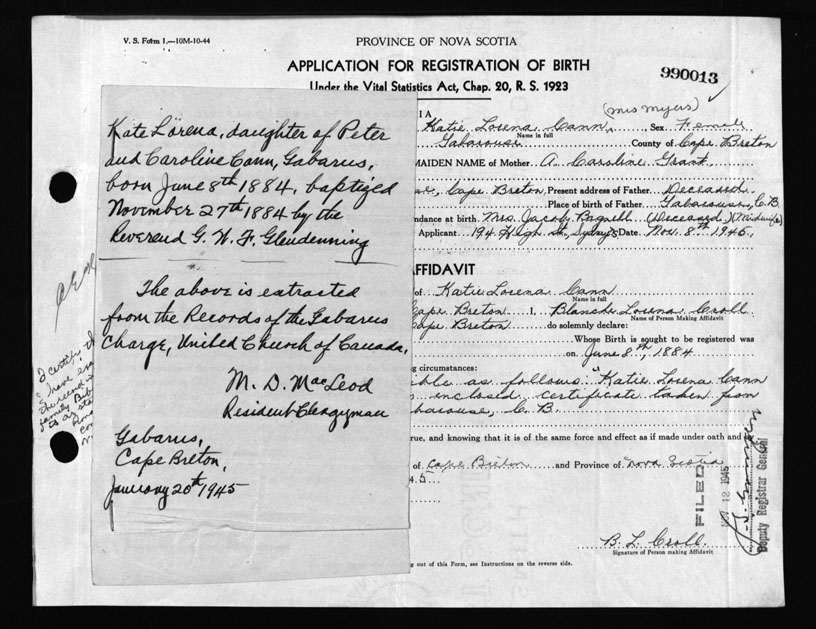 V. S. Form 1.—10M-10-44
PROVINCE OF NOVA SCOTIA
APPLICATION FOR REGISTRATION OF BIRTH
990013
Under the Vital Statistics Act, Chap. 20, R. S. 1923
(Mrs Myers)
Kate Lorena, daughter of Peter
and Caroline Cann, Gabarus,
born June 8th 1884, baptized
November 27th 1884 by the
Reverend G. W. F. Glendenning
The above is extracted
from the Records of the Gabarus
Charge, United Church of Canada,
M. D. MacLeod
Resident Clergyman
Gabarus,
Cape Breton,
January 20th 1945
IA
Katie Lorena Cann, Sex Female
Name in full
Gabarouse County of Cape Breton
MAIDEN NAME of Mother A. Caroline Grant
se, Cape Breton Present address of Father Deceased
Place of birth of Father Gabarouse, C.B.
ndance at birth Mrs. Jacob Bagnell (Deceased) (Midwife)
Applicant 194 High St., Sydney Date Nov. 8th 1945.
AFFIDAVIT
of Katie Lorena Cann
Name in full
Cape Breton I, Blanche Lorena Croll
Name of Person Making Affidavit
Cape Breton do solemnly declare:
Whose Birth is sought to be registered was
on June 8th, 1884
ng circumstances:
ible as follows "Katie Lorena Cann
enclosed certificate taken from
barouse, C. B.
rue, and knowing that it is of the same force and effect as if made under oath and
of Cape Breton and Province of Nova Scotia
45
FILED
12 1945
Deputy Registrar General
B. L. Croll
Signature of Person making Affidavit
g out of this Form, see Instructions on the reverse side.
I certify
I have
the record in
family Bible